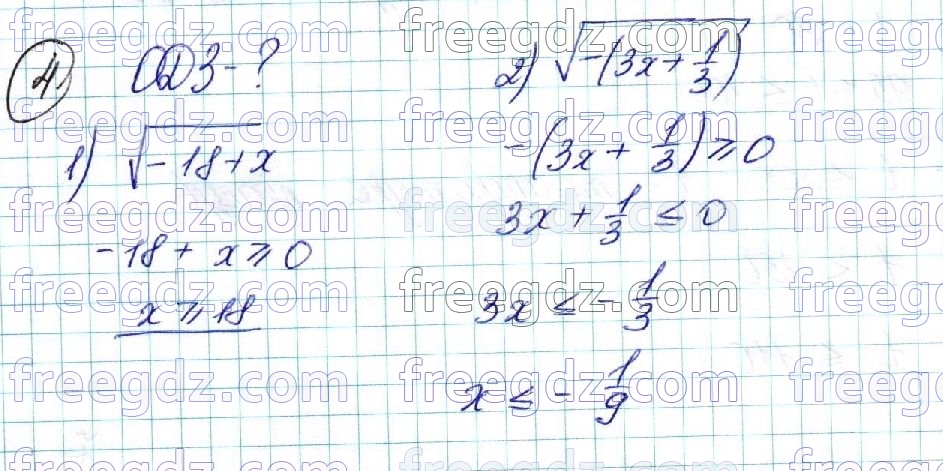 4) ОДЗ-?
1) √(-18+x)
-18+x≥0
x≥18
2) √(-(3x+1/3))
-(3x+1/3)≥0
3x+1/3≤0
3x≤-1/3
x≤-1/9
freegdz.com